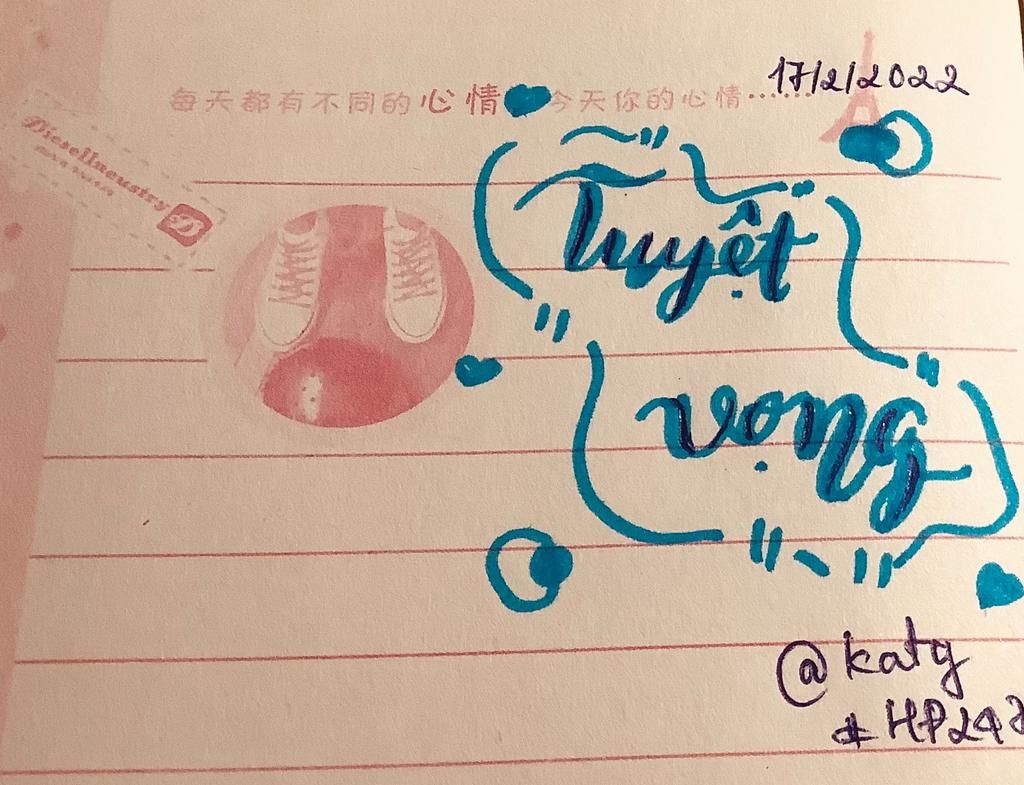 17/2/2022
每天都有不同的心情 今天你的心情……
Diesellneustry
D
Tuyệt
vọng
@katy